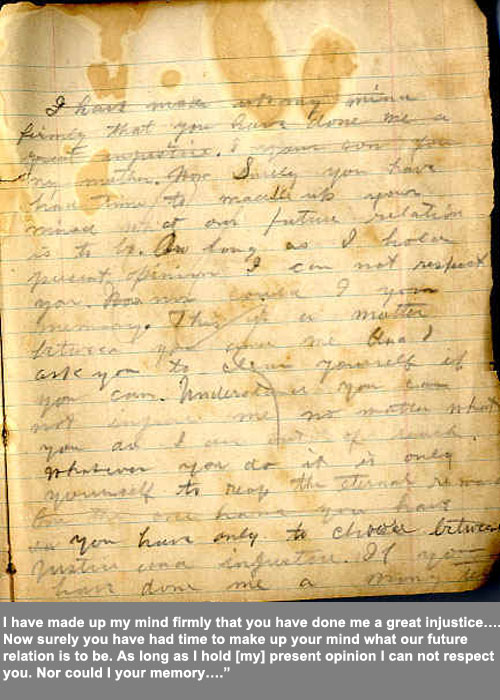 I have made up my mind
firmly that you have done me a
great injustice. I your son you
my mother. Now Surely you have
had time to make up your
mind what our future relation
is to be. As long as I hold
present opinion I can not respect
you. Nor could I your
memory. This is a matter
between you and me and I
ask you to clear yourself if
you can. Understand you can
not injure me no matter what
you do I am out of reach.
Whatever you do it is only
yourself to reap the eternal reward
On the one hand you have
you have only to choose between
Justice and injustice. If you
have done me a
I have made up my mind firmly that you have done me a great injustice....
Now surely you have had time to make up your mind what our future
relation is to be. As long as I hold [my] present opinion I can not respect
you. Nor could I your memory....”